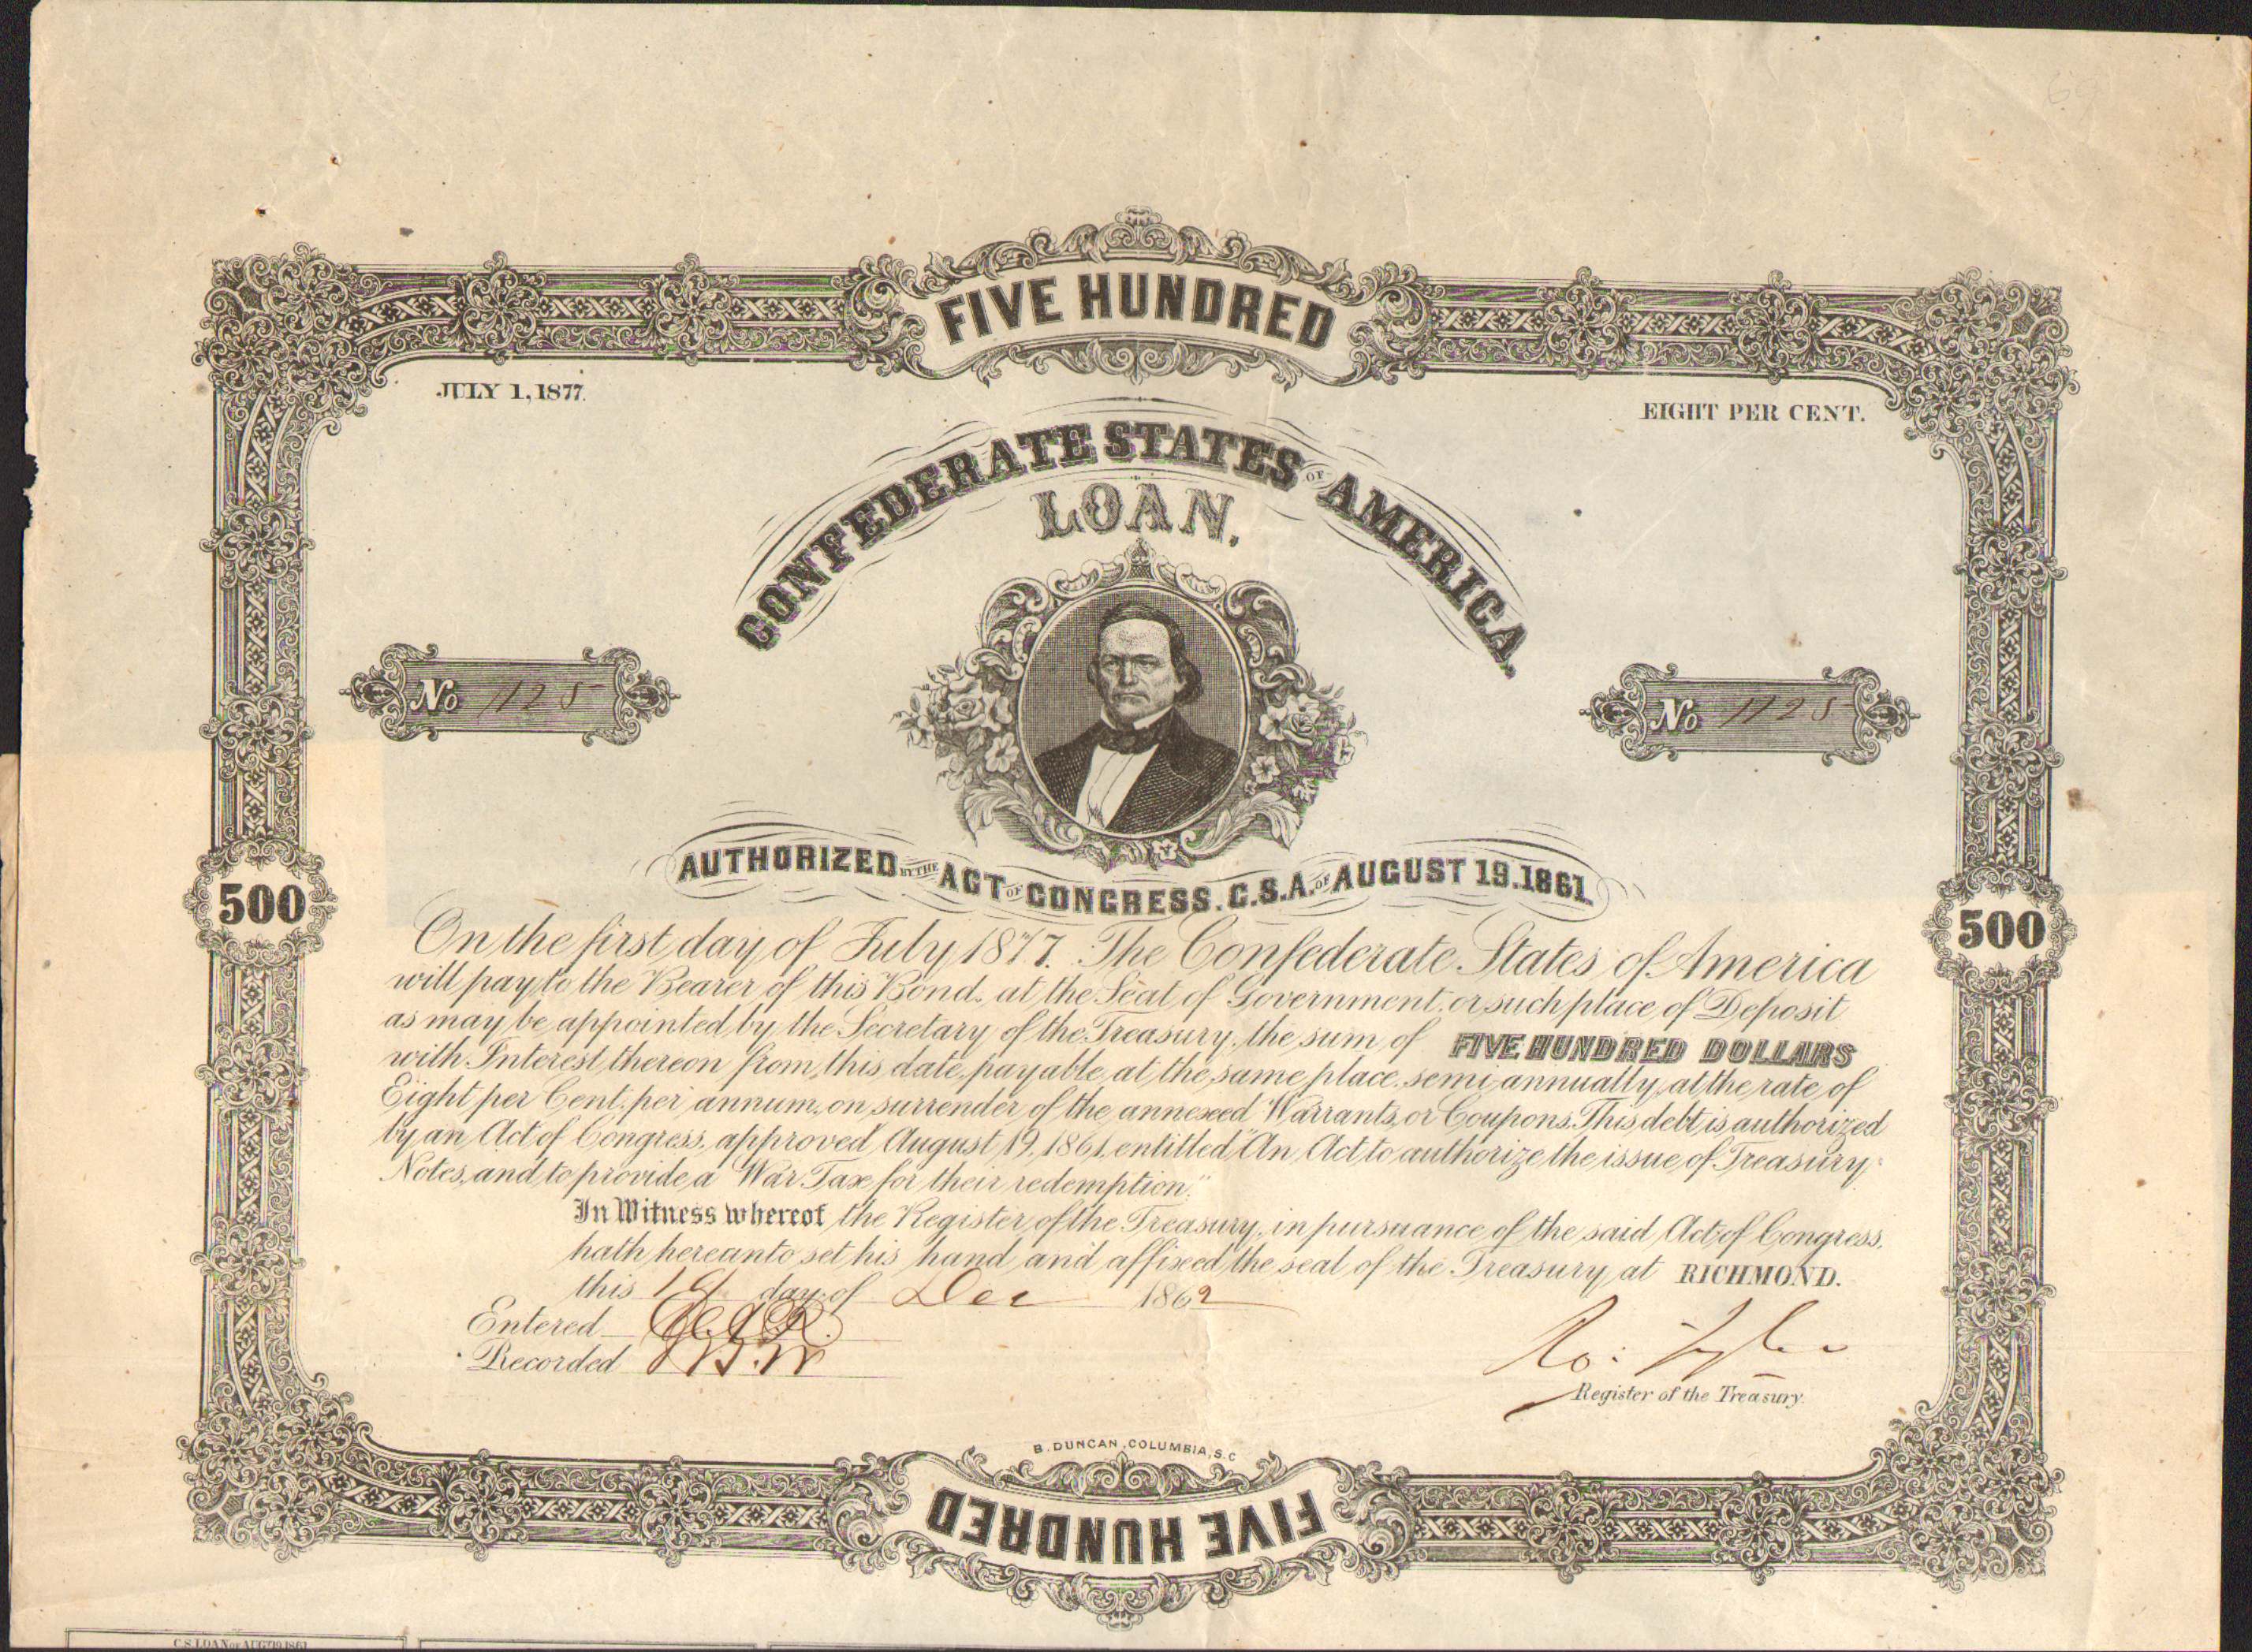 FIVE HUNDRED
JULY 1, 1877.
EIGHT PER CENT.
CONFEDERATE STATES OF AMERICA.
LOAN.
No 1125
No 1125
AUTHORIZED BY THE ACT OF CONGRESS. C.S.A. OF AUGUST 19. 1861.
500
500
On the first day of July 1877. The Confederate States of America
will pay to the Bearer of this Bond, at the Seat of Government, or such place of Deposit
as may be appointed by the Secretary of the Treasury, the sum of FIVE HUNDRED DOLLARS
with Interest thereon from this date, payable at the same place semi annually, at the rate of
Eight per Cent. per annum, on surrender of the annexed Warrants, or Coupons. This debt is authorized
by an Act of Congress, approved August 19, 1861, entitled "An Act to authorize the issue of Treasury
Notes, and to provide a War Tax for their redemption."
In Witness whereof the Register of the Treasury, in pursuance of the said Act of Congress,
hath hereunto set his hand and affixed the seal of the Treasury, at RICHMOND.
this day of Dec 1862
Entered
Recorded
Ro: Tyler
Register of the Treasury.
B. DUNCAN, COLUMBIA, S.C
FIVE HUNDRED
C.S. LOAN OF AUG'T 19 1861